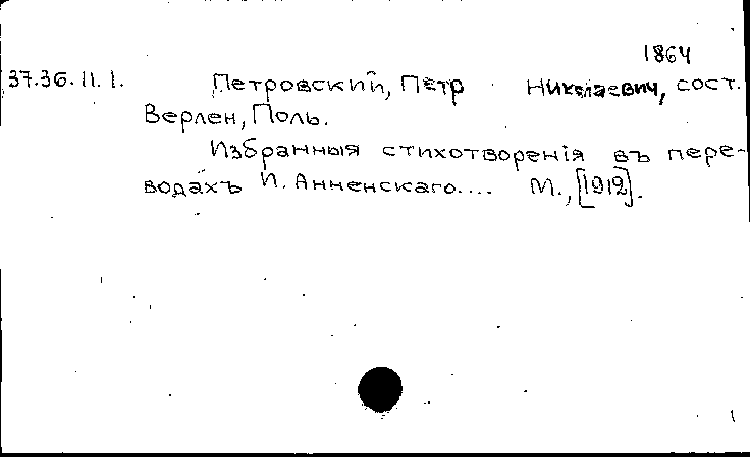 1864
37.36.11.1. Петровский, Петр Николаевич, сост.
Верлен, Поль.
Избранныя стихотворенія въ пере-
водахъ И. Анненскаго.... М., [1912].